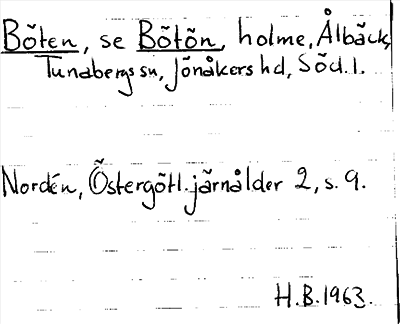 Böten, se Bötön, holme, Ålbäck,
Tunabergs sn, Jönåkers hd, Söd.l.
Nordén, Östergötl. järnålder 2, s. 9.
H.B. 1963.